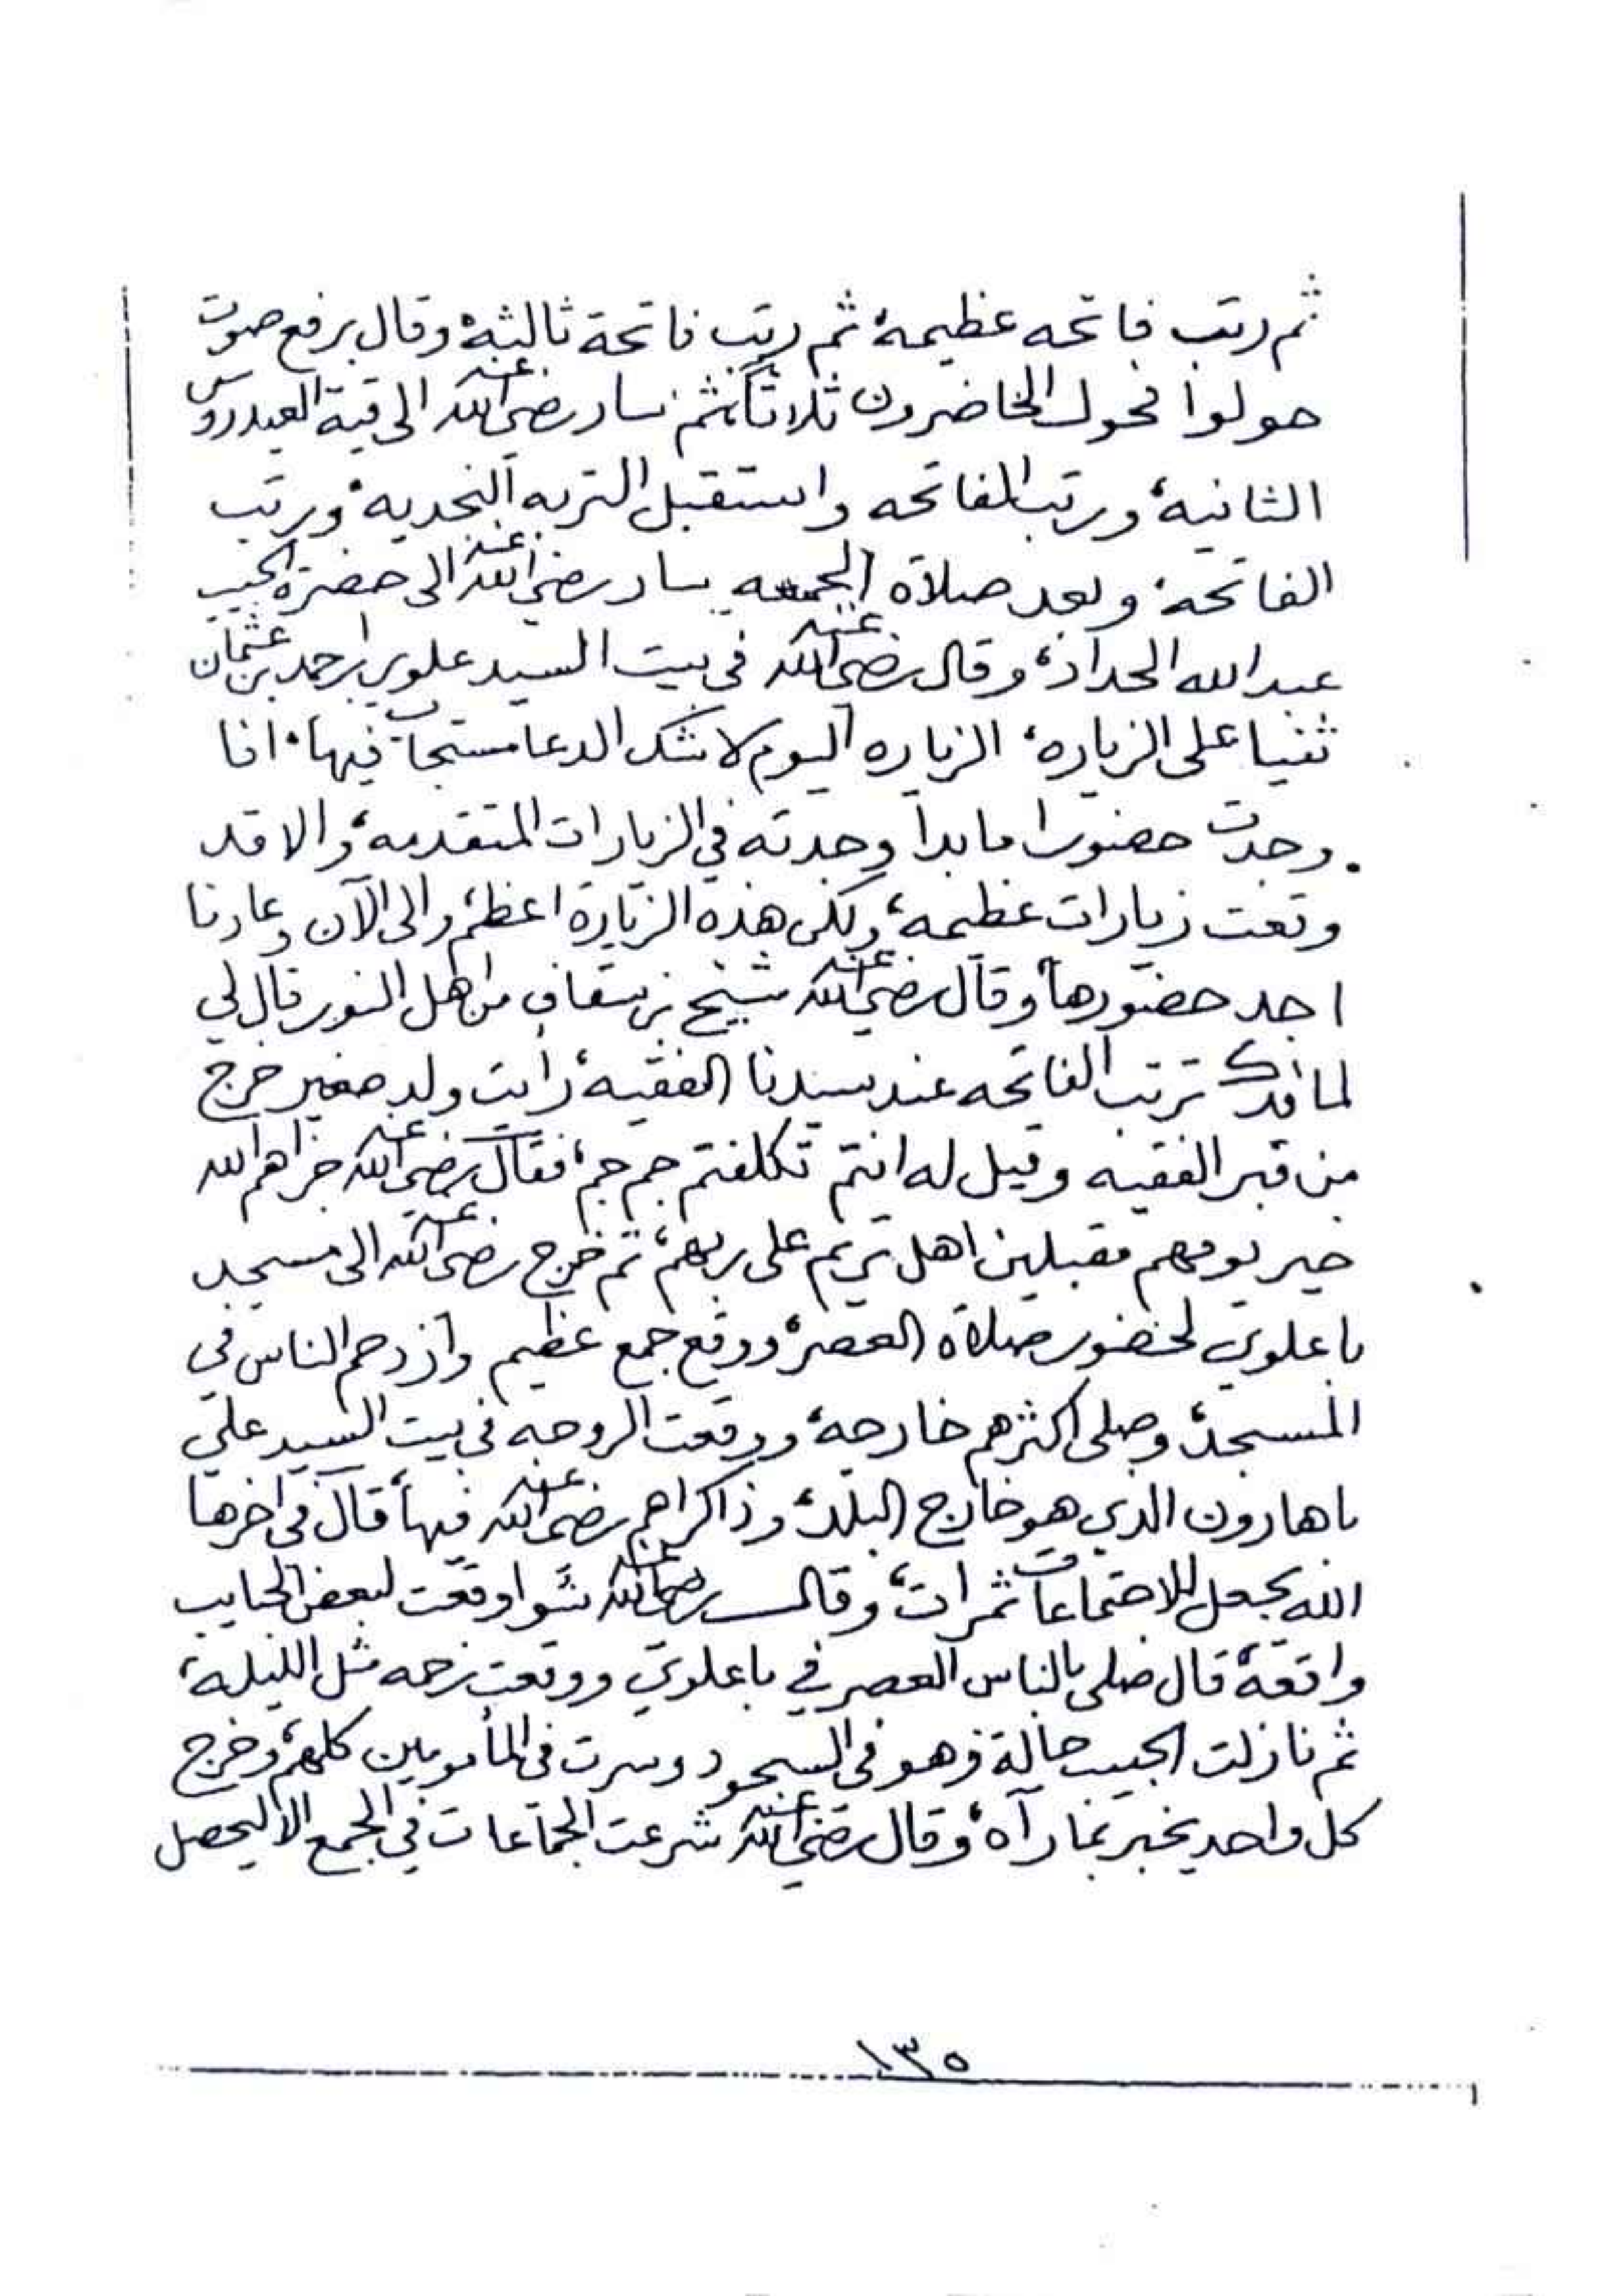 ثم رتب فاتحه عظيمة، ثم رتب فاتحة ثالثة، وقال برفع صوت
حولوا فحول الحاضرون ثلاثاً، ثم سار رضي الله عنه الى قبة العيدروس
الثانية، ورتب الفاتحه واستقبل التربه النجديه، ورتب
الفاتحة، وبعد صلاة الجمعه سار رضي الله عنه الى حضرة الحبيب
عبدالله الحداد، وقال رضي الله عنه في بيت السيد علوي بن احمد بن عثمان
ثنيا على الزياره، الزياره اليوم لا شك الدعا مستجاب فيها، انا
وجدت حضورا ما بدا وجدته في الزيارات المتقدمه، والا قد
وقعت زيارات عظيمه، ولكن هذه الزيارة اعظم، والى الآن وعادنا
اجد حضورها، وقال رضي الله عنه شيخ بن سقاف من اهل النور قال لي
لما قدك ترتب الفاتحه عند سيدنا الفقيه، رايت ولد صغير خرج
من قبر الفقيه وقيل له انتم تكلفتم جم جم، فقال رضي الله عنه جزاهم الله
خير يومهم مقبلين اهل تريم على ربهم، ثم خرج رضي الله عنه الى مسجد
باعلوي لحضور صلاة العصر، ووقع جمع عظيم وازدحم الناس في
المسجد، وصلى اكثرهم خارجه، ووقعت الروحه في بيت السيد علي
باهارون الذي هو خارج البلد، وذاكراهم رضي الله عنه فيها، قال في اخرها
الله يجعل للاجتماعات ثمرات، وقال رضي الله عنه شوا وقعت لبعض الحبايب
واقعة، قال صلى بالناس العصر في باعلوي ووقعت زحمه مثل الليلة،
ثم نازلت الحبيب حالة وهو في السجود وسرت في المأمومين كلهم، وخرج
كل واحد يخبر بما رآه، وقال رضي الله عنه شرعت الجماعات في الجمع الا ليحصل
١٣٥